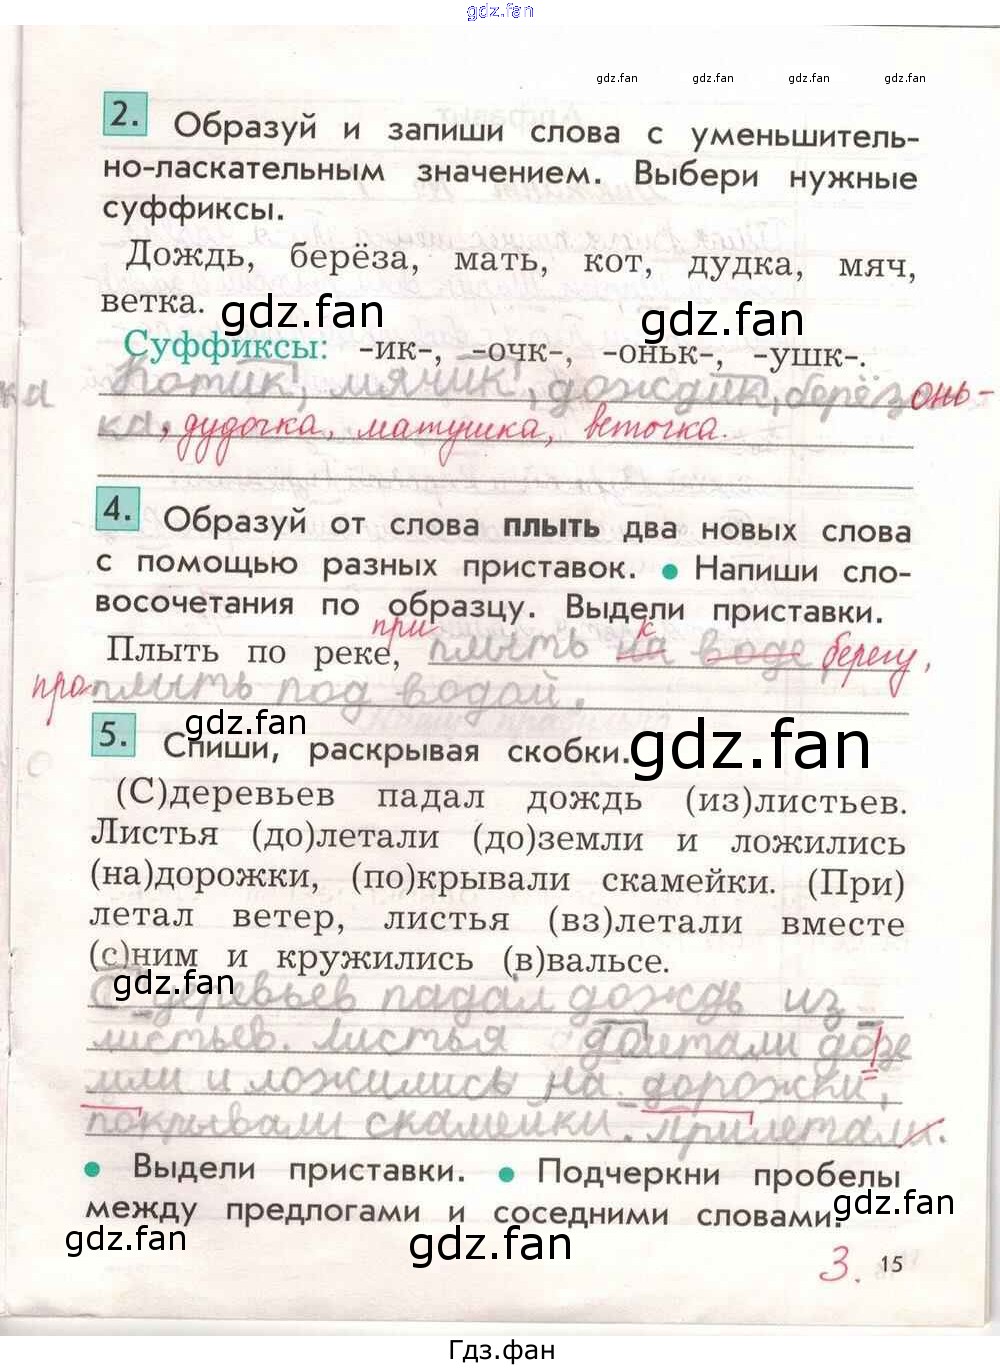 gdz.fan
gdz.fan gdz.fan gdz.fan gdz.fan
2. Образуй и запиши слова с уменьшитель-
но-ласкательным значением. Выбери нужные
суффиксы.
Дождь, берёза, мать, кот, дудка, мяч,
ветка.
gdz.fan gdz.fan
Суффиксы: -ик-, -очк-, -оньк-, -ушк-.
Котик, мячик, дождик, берёзонь-
ка, дудочка, матушка, веточка.
4. Образуй от слова плыть два новых слова
с помощью разных приставок. • Напиши сло-
восочетания по образцу. Выдели приставки.
при к
Плыть по реке, плыть на воде берегу,
проплыть под водой.
gdz.fan gdz.fan
5. Спиши, раскрывая скобки.
(С)деревьев падал дождь (из)листьев.
Листья (до)летали (до)земли и ложились
(на)дорожки, (по)крывали скамейки. (При)
летал ветер, листья (вз)летали вместе
(с)ним и кружились (в)вальсе.
gdz.fan gdz.fan
С деревьев падал дождь из
листьев. Листья долетали дозе
мли и ложились на дорожки,
покрывали скамейки. прилетали.
• Выдели приставки. • Подчеркни пробелы
между предлогами и соседними словами.
gdz.fan gdz.fan gdz.fan
3. 15
Гдз.фан